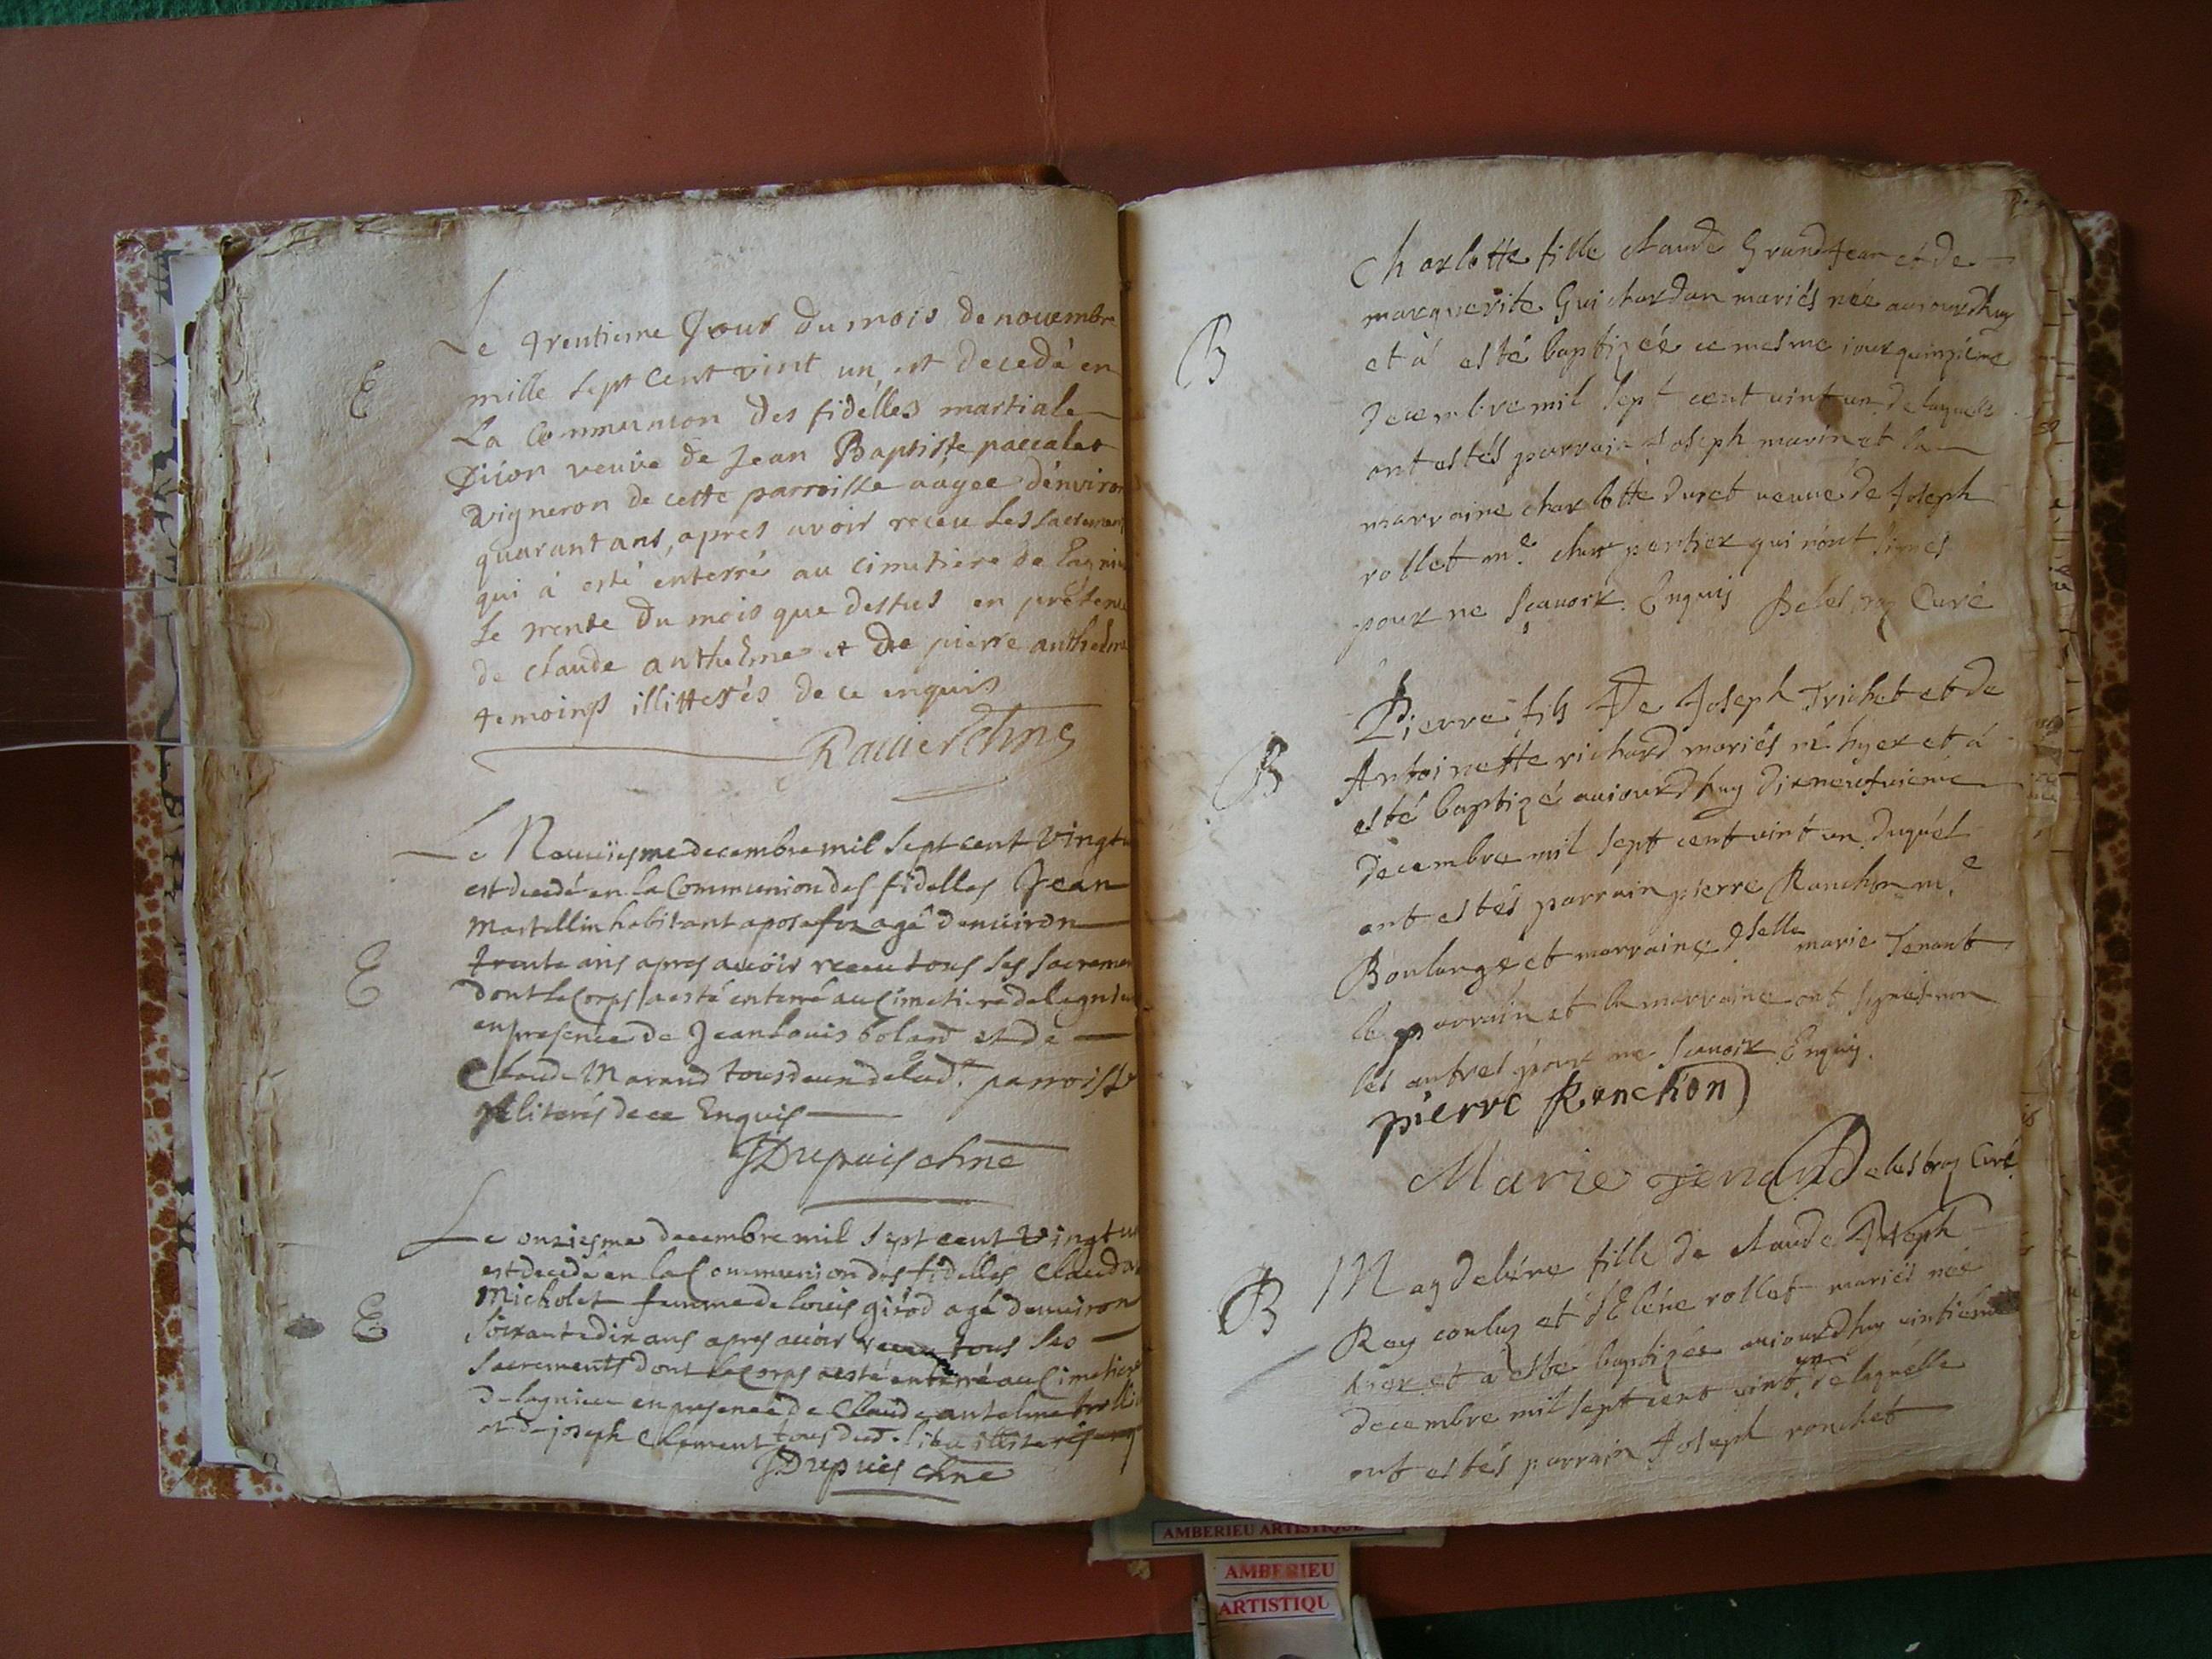 E
Le trentieme Jour du mois de nouembre
mille sept Cent vint un, est decedé en
La Communion des fidelles martiale
Diion veuve de Jean Baptiste paccalet
vigneron de cette parroisse aagee d'environ
quarant ans, apres avoir receu les sacremen
qui à esté enterré au cimetiere de Lagnie
le trente du mois que dessus en présence
de claude anthelme et de pierre anthelme
temoings illitterés de ce enquis
Rauier chne
E
Le Neuuiesme decembre mil sept cent vingtu
est decedé en la Communion des fidelles Jean
Martellin habitant a posafol agé denuiron
trente ans apres auoir receu tous ses sacremen
dont le Corps a esté enterré au Cimetiere de lagnieu
en presence de Jean Louis bolard et de
Claude Marand tous deux de lad.e parroisse
illiterés de ce Enquis
JDupuis chne
E
Le onziesme decembre mil sept cent vingtu
est decedé en la Communion des fidelles Clauda
Micholet femme de louis girod agé denuiron
Soixante dix ans apres auoir receu tous ses
Sacrements dont le Corps a esté enterré au Cimetiere
de lagnieu en presence de Claude antelme
et de joseph Clement tous dud. lieu illiterés
JDupuis chne
B
Charlotte fille claude Grand Jean et de
marguerite Guichardan mariés née auiourdhuy
et à esté baptizéé ce mesme iour quinziéme
Decembre mil sept cent uint un de laquelle
ont estés parrain Joseph marin et la
marraine charlotte duret veuve de Joseph
rollet m.e charpentier qui n'ont signés
pour ne sçauoir. Enquis Delestraz Curé
B
Pierre fils De Joseph Trichet et de
Antoinette richard mariés né hyer et á
esté baptizé auiourdhuy dixneufuieme
decembre mil sept cent uint un duquél
ont estés parrain pierre Ranchon m.e
Boulangé et marraine Dselle marie Tenant
le parrain et la marraine ont signés non
les autres pour ne scauoir Enquis.
pierre Ranchon
Marie Tenand Delestraz Curé
B
Magdeléne fille de claude Joseph
Rey couluz et d'Eléne rollet mariés née
hier et a esté baptizée auiourdhuy uintieme
decembre mil sept cent uint un de laquélle
ont estés parrain Joseph ronchet
AMBERIEU ARTISTIQUE
AMBERIEU
ARTISTIQU